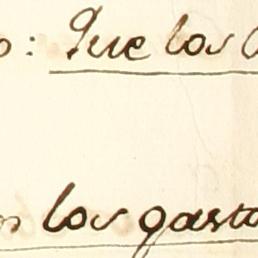 : Que los
los gasto